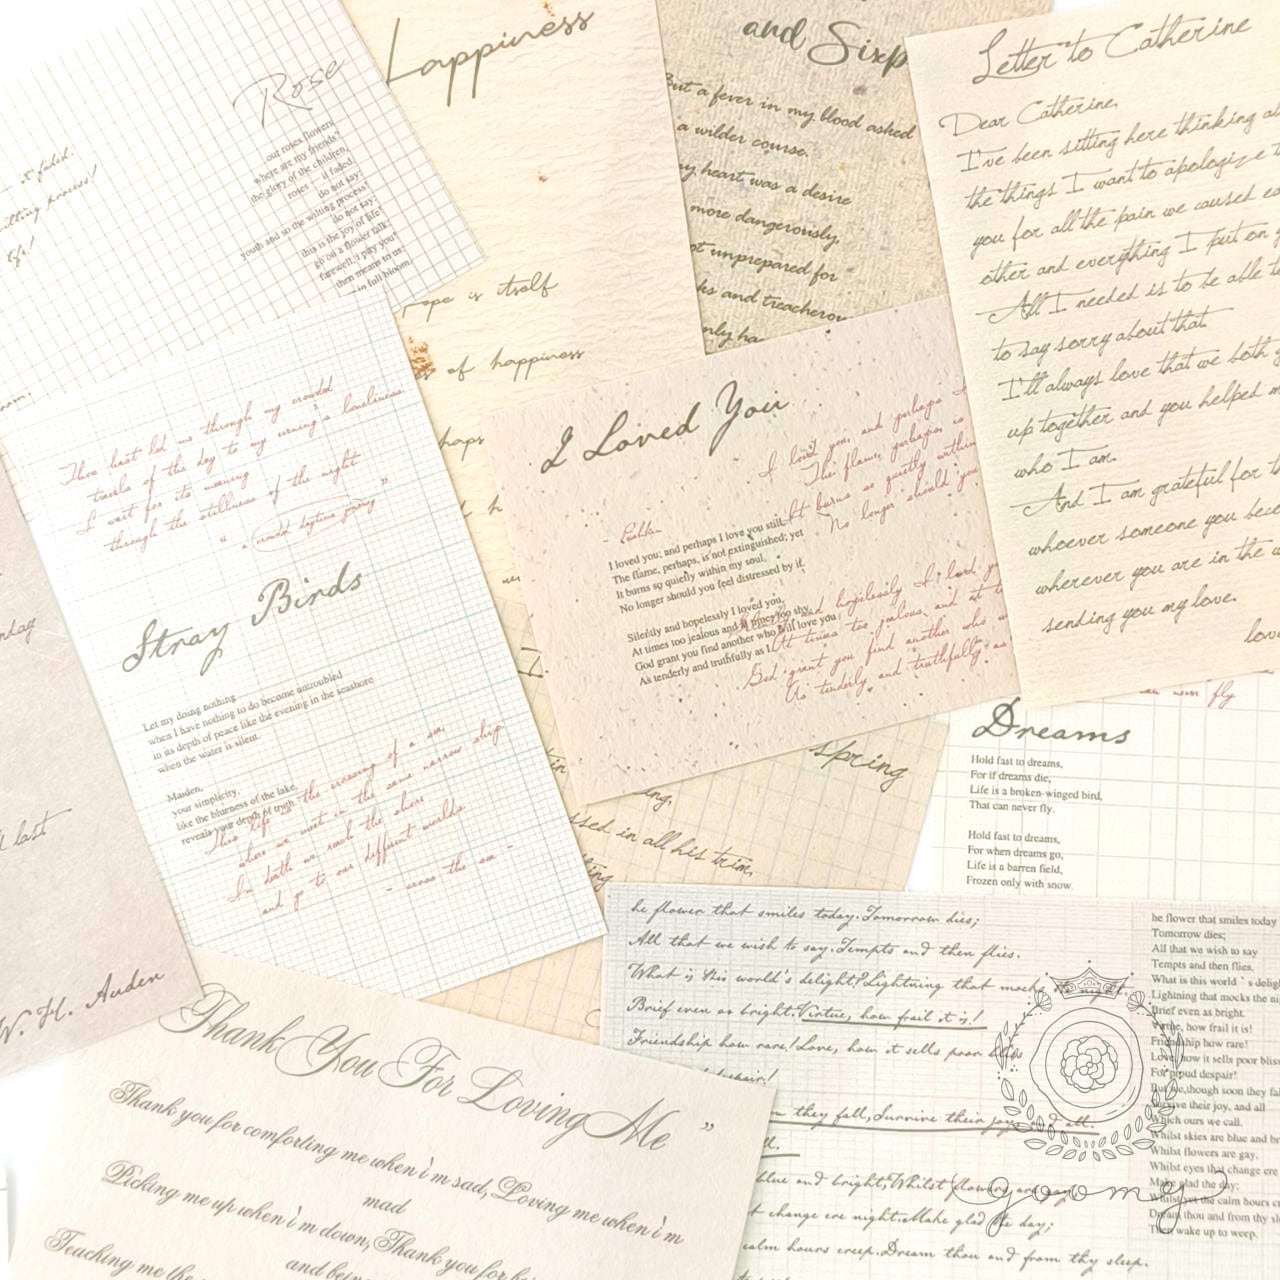 Rose
our roses flowers
where are my friends?
the glory of the children,
roses it faded.
do not say:
youth and so the wilting process!
do not say:
this is the joy of life!
go on a flower talk,
farewell, i pity you!
then means to us:
in full bloom.
it faded.
wilting process!
life!
Happiness
hope is itself
of happiness
and Sixp
But a fever in my blood asked
a wilder course.
my heart was a desire
more dangerously,
not unprepared for
ks and treacherou
only ha
Letter to Catherine
Dear Catherine,
I've been sitting here thinking a
the things I want to apologize t
you for all the pain we caused ea
other and everything I put on y
All I needed is to be able t
to say sorry about that
I'll always love that we both g
up together and you helped m
who I am.
And I am grateful for t
whoever someone you beco
wherever you are in the w
sending you my love.
love
Thou hast led me through my crowded
travels of the day to my evening's loneliness.
I wait for its meaning
through the stillness of the night
Stray Birds
Let my doing nothing
when I have nothing to do become untroubled
in its depth of peace like the evening in the seashore
when the water is silent.
Maiden,
your simplicity,
like the blueness of the lake,
reveals your depth of truth.
This life is the crossing of a sea,
where we meet in the same narrow ship
In death we reach the shore
and go to our different worlds.
- cross the sea -
I Loved You
I loved you, and perhaps I
The flame, perhaps is
It burns so quietly within
No longer should you
- Pushkin
I loved you; and perhaps I love you still,
The flame, perhaps, is not extinguished; yet
It burns so quietly within my soul,
No longer should you feel distressed by it.
Silently and hopelessly I loved you,
At times too jealous and at times too shy.
God grant you find another who will love you
As tenderly and truthfully as I
and hopelessly I loved yo
At times too jealous, and at t
God grant you find another who w
As tenderly and truthfully as
spring
sed in all his trim,
can never fly
Dreams
Hold fast to dreams,
For if dreams die,
Life is a broken-winged bird,
That can never fly.
Hold fast to dreams,
For when dreams go,
Life is a barren field,
Frozen only with snow.
nday
last
W. H. Auden
he flower that smiles today.Tomorrow dies;
All that we wish to say.Tempts and then flies.
What is this world's delight?Lightning that mocks the night.
Brief even as bright.Virtue, how frail it is!
Friendship how rare!Love, how it sells poor bliss
despair!
they fall,Survive their joy, and all.
ll.
blue and bright,Whilst flowers are gay,
t change ere night.Make glad the day;
calm hours creep.Dream thou and from thy sleep.
he flower that smiles today
Tomorrow dies;
All that we wish to say
Tempts and then flies.
What is this world`s deligh
Lightning that mocks the ni
Brief even as bright.
Virtue, how frail it is!
Friendship how rare!
Love, how it sells poor bliss
For proud despair!
But we,though soon they fal
Survive their joy, and all
Which ours we call.
Whilst skies are blue and br
Whilst flowers are gay,
Whilst eyes that change ere
Make glad the day;
Whilst yet the calm hours c
Dream thou and from thy sl
Then wake up to weep.
Thank You For Loving Me ”
Thank you for comforting me when i`m sad, Loving me when i`m
mad
Picking me up when i`m down, Thank you for be
Teaching me the
and being
goomg